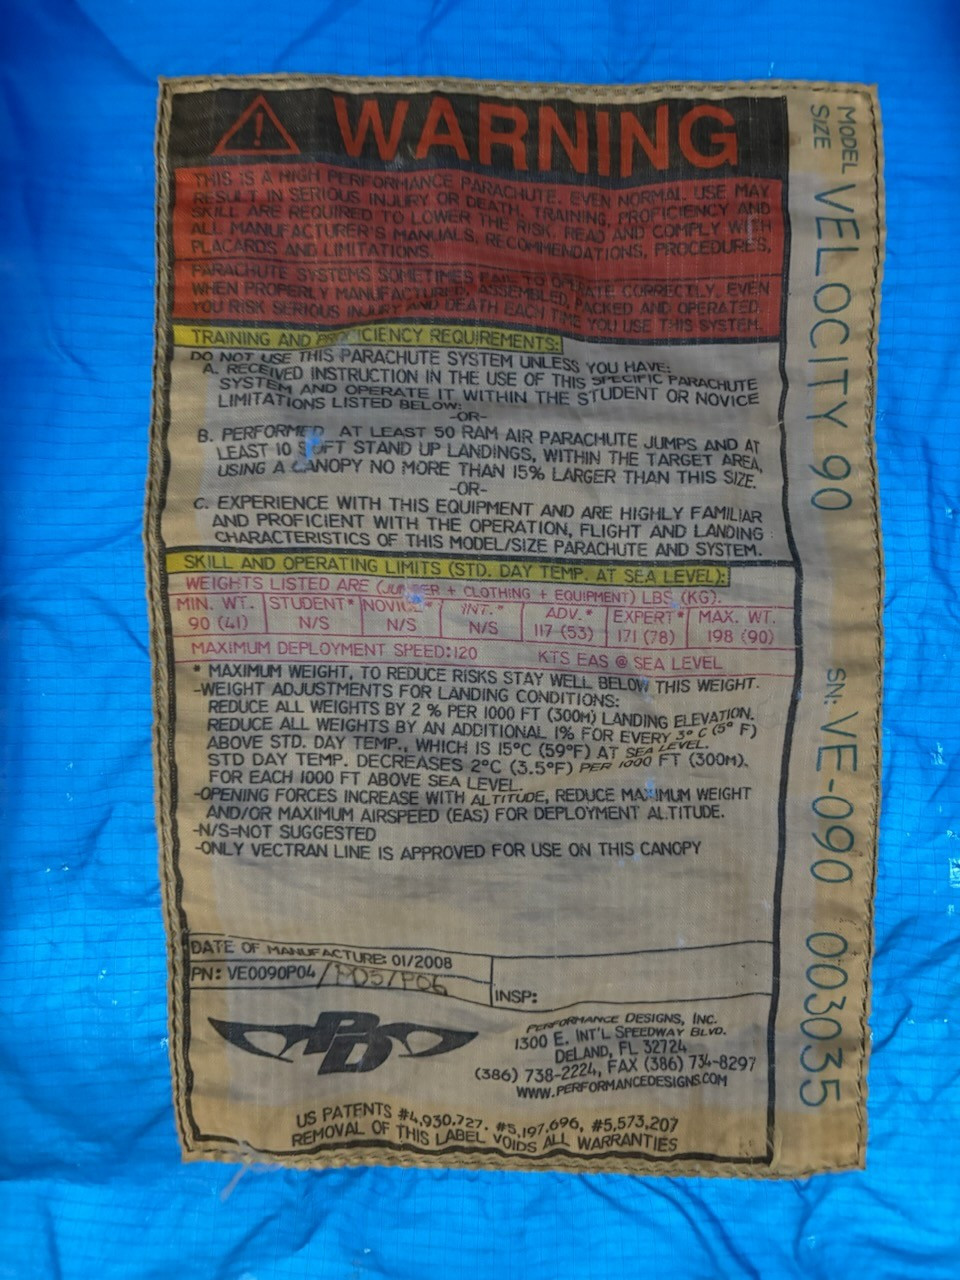 WARNING
THIS IS A HIGH PERFORMANCE PARACHUTE. EVEN NORMAL USE MAY
RESULT IN SERIOUS INJURY OR DEATH. TRAINING, PROFICIENCY AND
SKILL ARE REQUIRED TO LOWER THE RISK. READ AND COMPLY WITH
ALL MANUFACTURER'S MANUALS, RECOMMENDATIONS, PROCEDURES,
PLACARDS AND LIMITATIONS.
PARACHUTE SYSTEMS SOMETIMES FAIL TO OPERATE CORRECTLY, EVEN
WHEN PROPERLY MANUFACTURED, ASSEMBLED, PACKED AND OPERATED.
YOU RISK SERIOUS INJURY AND DEATH EACH TIME YOU USE THIS SYSTEM.
TRAINING AND PROFICIENCY REQUIREMENTS:
DO NOT USE THIS PARACHUTE SYSTEM UNLESS YOU HAVE:
A. RECEIVED INSTRUCTION IN THE USE OF THIS SPECIFIC PARACHUTE
SYSTEM AND OPERATE IT WITHIN THE STUDENT OR NOVICE
LIMITATIONS LISTED BELOW:
-OR-
B. PERFORMED AT LEAST 50 RAM AIR PARACHUTE JUMPS AND AT
LEAST 10 SOFT STAND UP LANDINGS, WITHIN THE TARGET AREA,
USING A CANOPY NO MORE THAN 15% LARGER THAN THIS SIZE.
-OR-
C. EXPERIENCE WITH THIS EQUIPMENT AND ARE HIGHLY FAMILIAR
AND PROFICIENT WITH THE OPERATION, FLIGHT AND LANDING
CHARACTERISTICS OF THIS MODEL/SIZE PARACHUTE AND SYSTEM.
SKILL AND OPERATING LIMITS (STD. DAY TEMP. AT SEA LEVEL):
WEIGHTS LISTED ARE (JUMPER + CLOTHING + EQUIPMENT) LBS (KG).
MIN. WT. STUDENT* NOVICE* INT.* ADV.* EXPERT* MAX. WT.
90 (41) N/S N/S N/S 117 (53) 171 (78) 198 (90)
MAXIMUM DEPLOYMENT SPEED:120 KTS EAS @ SEA LEVEL
* MAXIMUM WEIGHT, TO REDUCE RISKS STAY WELL BELOW THIS WEIGHT.
-WEIGHT ADJUSTMENTS FOR LANDING CONDITIONS:
REDUCE ALL WEIGHTS BY 2 % PER 1000 FT (300M) LANDING ELEVATION.
REDUCE ALL WEIGHTS BY AN ADDITIONAL 1% FOR EVERY 3° C (5° F)
ABOVE STD. DAY TEMP., WHICH IS 15°C (59°F) AT SEA LEVEL.
STD DAY TEMP. DECREASES 2°C (3.5°F) PER 1000 FT (300M).
FOR EACH 1000 FT ABOVE SEA LEVEL.
-OPENING FORCES INCREASE WITH ALTITUDE, REDUCE MAXIMUM WEIGHT
AND/OR MAXIMUM AIRSPEED (EAS) FOR DEPLOYMENT ALTITUDE.
-N/S=NOT SUGGESTED
-ONLY VECTRAN LINE IS APPROVED FOR USE ON THIS CANOPY
DATE OF MANUFACTURE: 01/2008
PN: VE0090P04/P05/P06
INSP:
PD
PERFORMANCE DESIGNS, INC.
1300 E. INT'L SPEEDWAY BLVD.
DELAND, FL 32724
(386) 738-2224, FAX (386) 734-8297
WWW.PERFORMANCEDESIGNS.COM
US PATENTS #4,930,727. #5,197,696, #5,573,207
REMOVAL OF THIS LABEL VOIDS ALL WARRANTIES
MODEL
SIZE
VELOCITY 90
SN: VE-090 003035